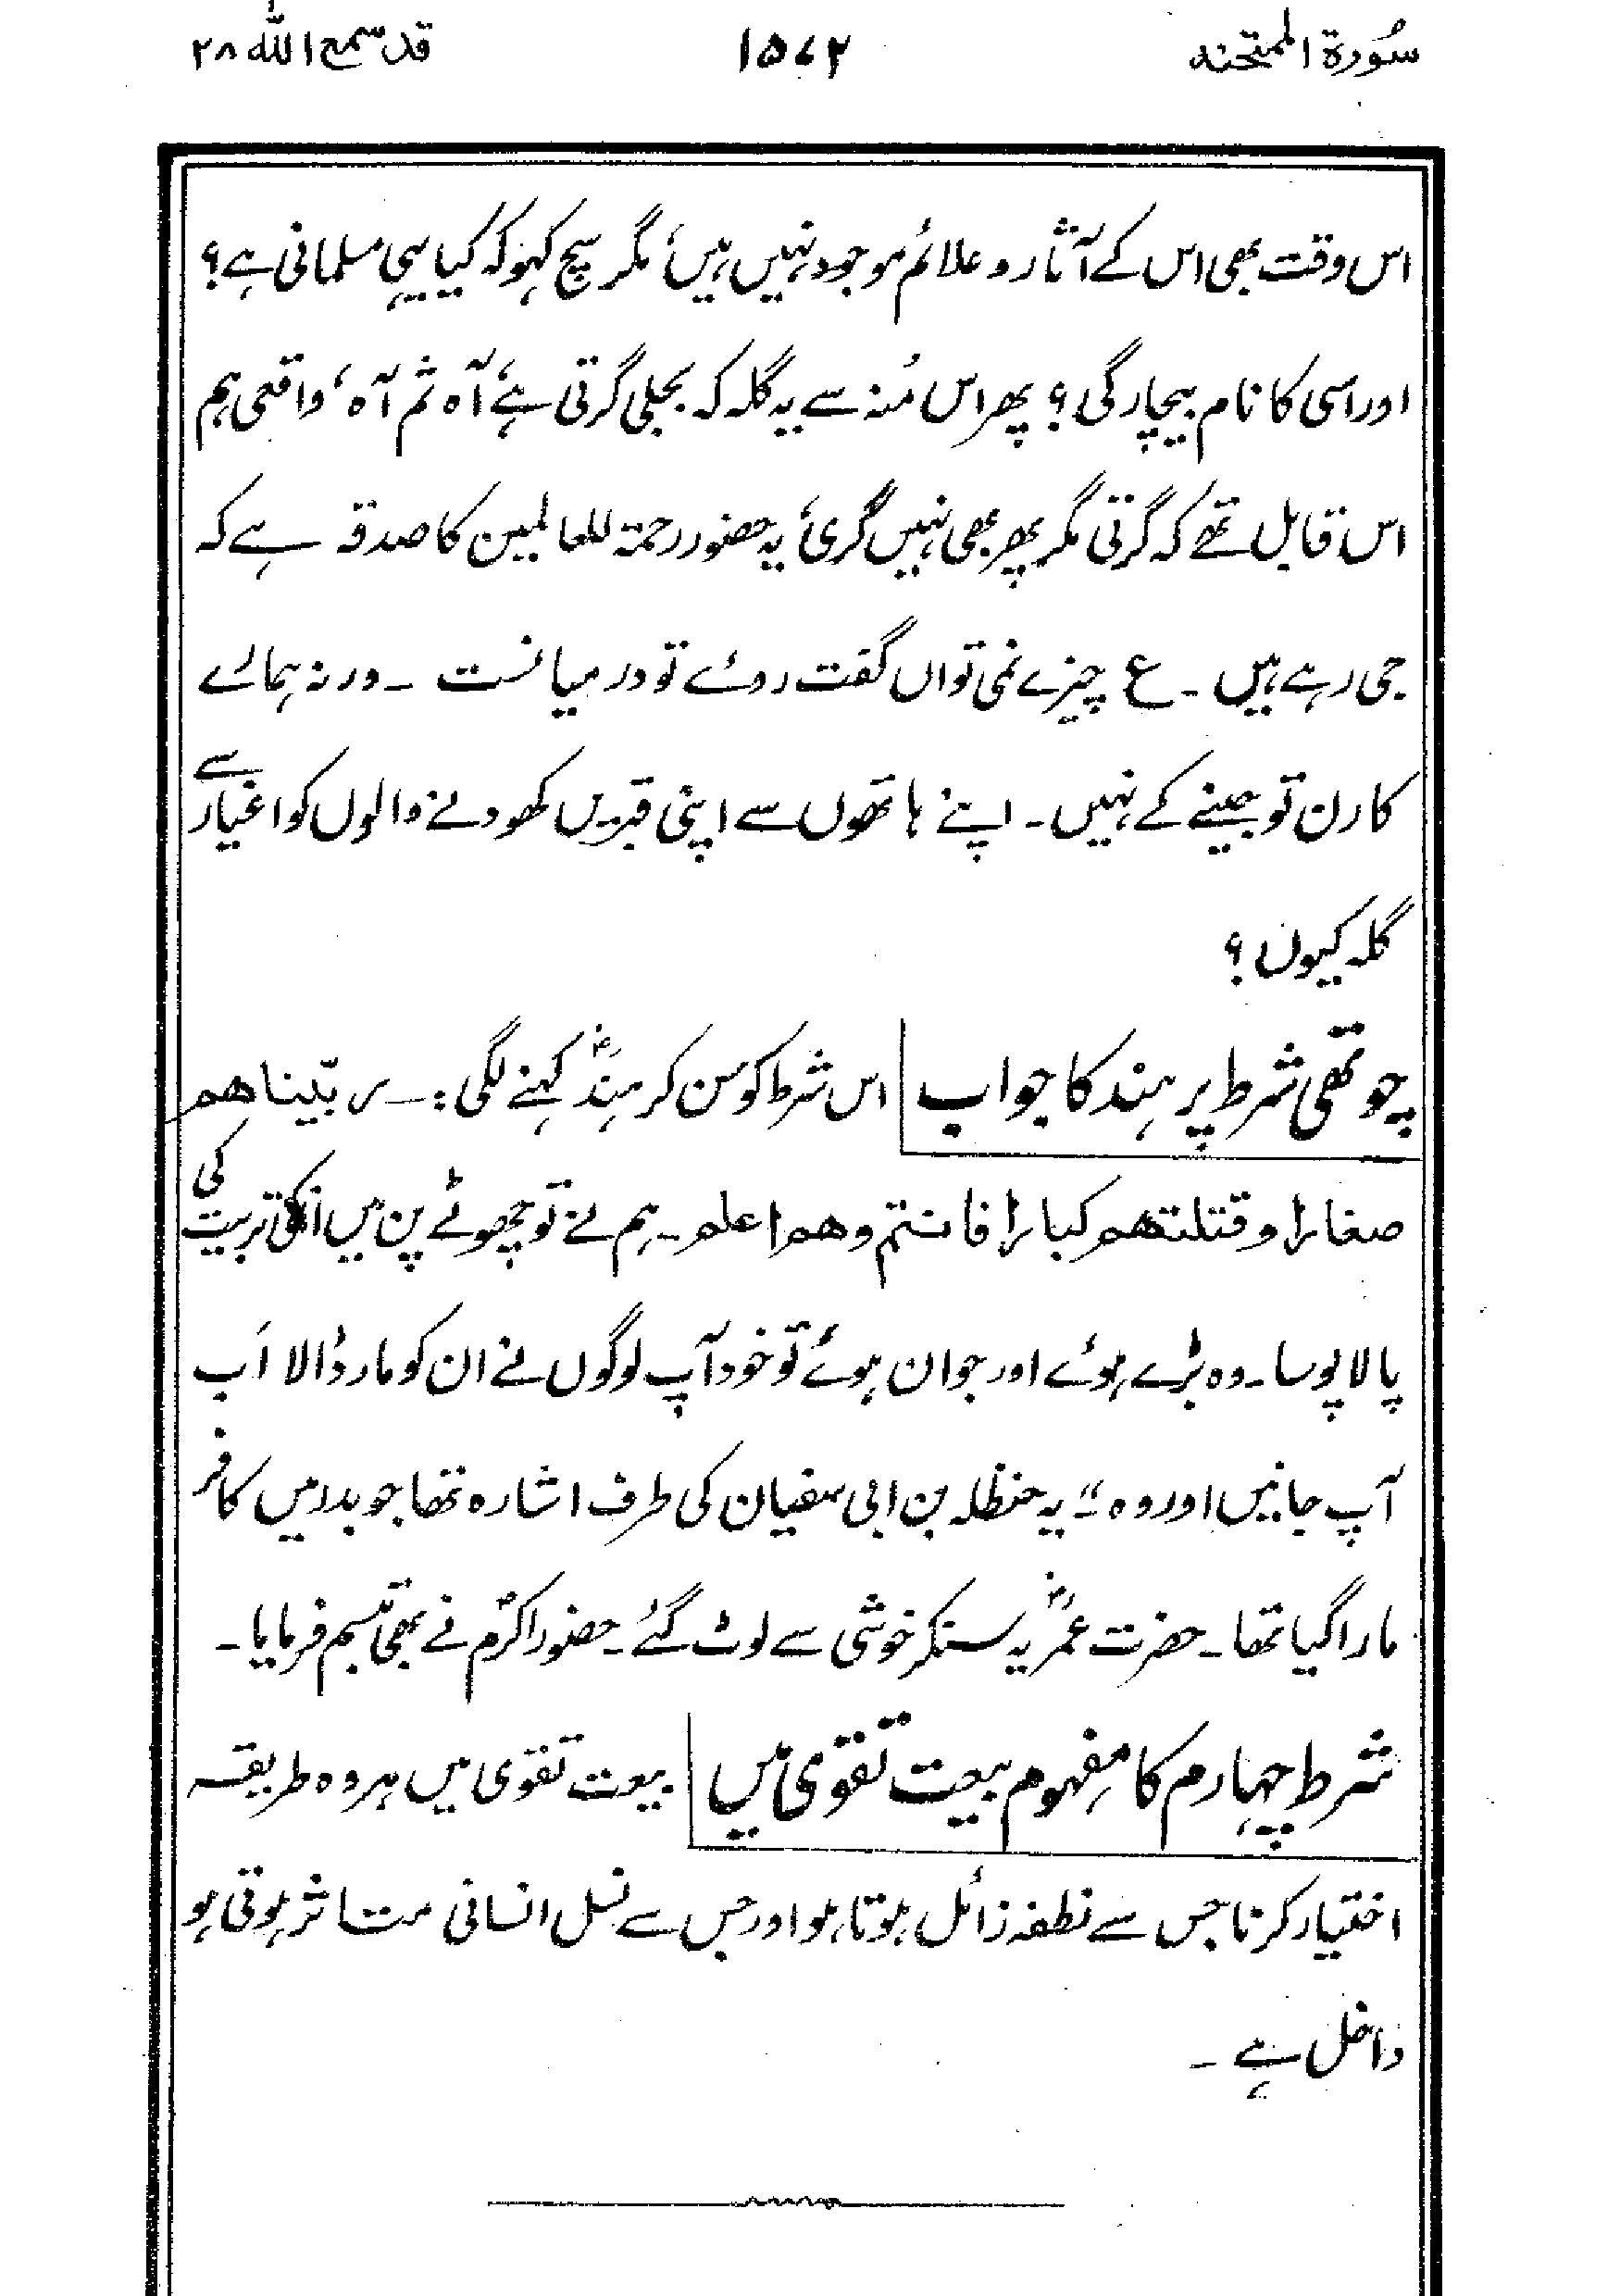 سُورة الممتحنہ ۱۵۷۲ قد سمع اللّٰہ ۲۸
اس وقت بھی اس کے آثار و علائم موجود نہیں ہیں، مگر سچ کہو کہ کیا یہی مسلمانی ہے؟
اور اسی کا نام بیچارگی؟ پھر اس مُنہ سے یہ گلہ کہ بجلی گرتی ہے، آہ ثم آہ، واقعی ہم
اس قابل تھے کہ گرتی مگر پھر بھی نہیں گری، یہ حضور رحمۃ للعالمین کا صدقہ ہے کہ
جی رہے ہیں ۔ ع چیزے نمی تواں گفت روئے تو درمیانست ۔ ورنہ ہمارے
کارن تو جینے کے نہیں ۔ اپنے ہاتھوں سے اپنی قبریں کھودنے والوں کو اغیار سے
گلہ کیوں؟
چوتھی شرط پر ہند کا جواب اس شرط کو سن کر ہندؓ کہنے لگی :۔ ربّیناهم
صغارا وقتلتهم کبارا فانتم وهم اعلم ۔ ہم نے تو چھوٹے پن میں انکی تربیت کی
پالا پوسا ۔ وہ بڑے ہوئے اور جوان ہوئے تو خود آپ لوگوں نے ان کو مار ڈالا اَب
آپ جانیں اور وہ ”۔ یہ حنظلہ بن ابی سفیان کی طرف اشارہ تھا جو بدر میں کافر
مارا گیا تھا ۔ حضرت عمرؓ یہ سنکر خوشی سے لوٹ گئے ۔ حضور اکرمؐ نے بھی تبسم فرمایا ۔
شرط چہارم کا مفہوم بیعت تقوٰی میں بیعت تقوی میں ہر وہ طریقہ
اختیار کرنا جس سے نطفہ زائل ہوتا ہو اور جس سے نسل انسانی متاثر ہوتی ہو
داخل ہے ۔